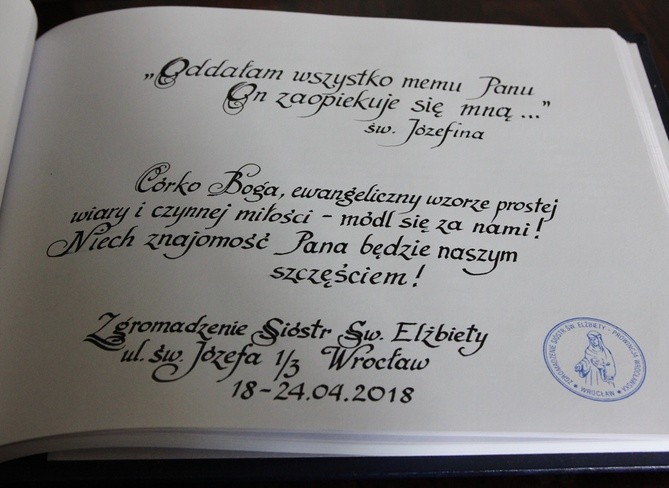 „Oddałam wszystko memu Panu
On zaopiekuje się mną..."
św. Józefina
Córko Boga, ewangeliczny wzorze prostej
wiary i czynnej miłości – módl się za nami!
Niech znajomość Pana będzie naszym
szczęściem!
Zgromadzenie Sióstr Św. Elżbiety
ul. św. Józefa 1/3 Wrocław
18-24.04.2018
ZGROMADZENIE SIÓSTR ŚW. ELŻBIETY - PROWINCJA WROCŁAWSKA
* WROCŁAW *